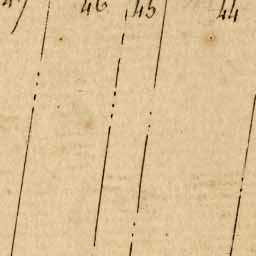 47 46 45 44